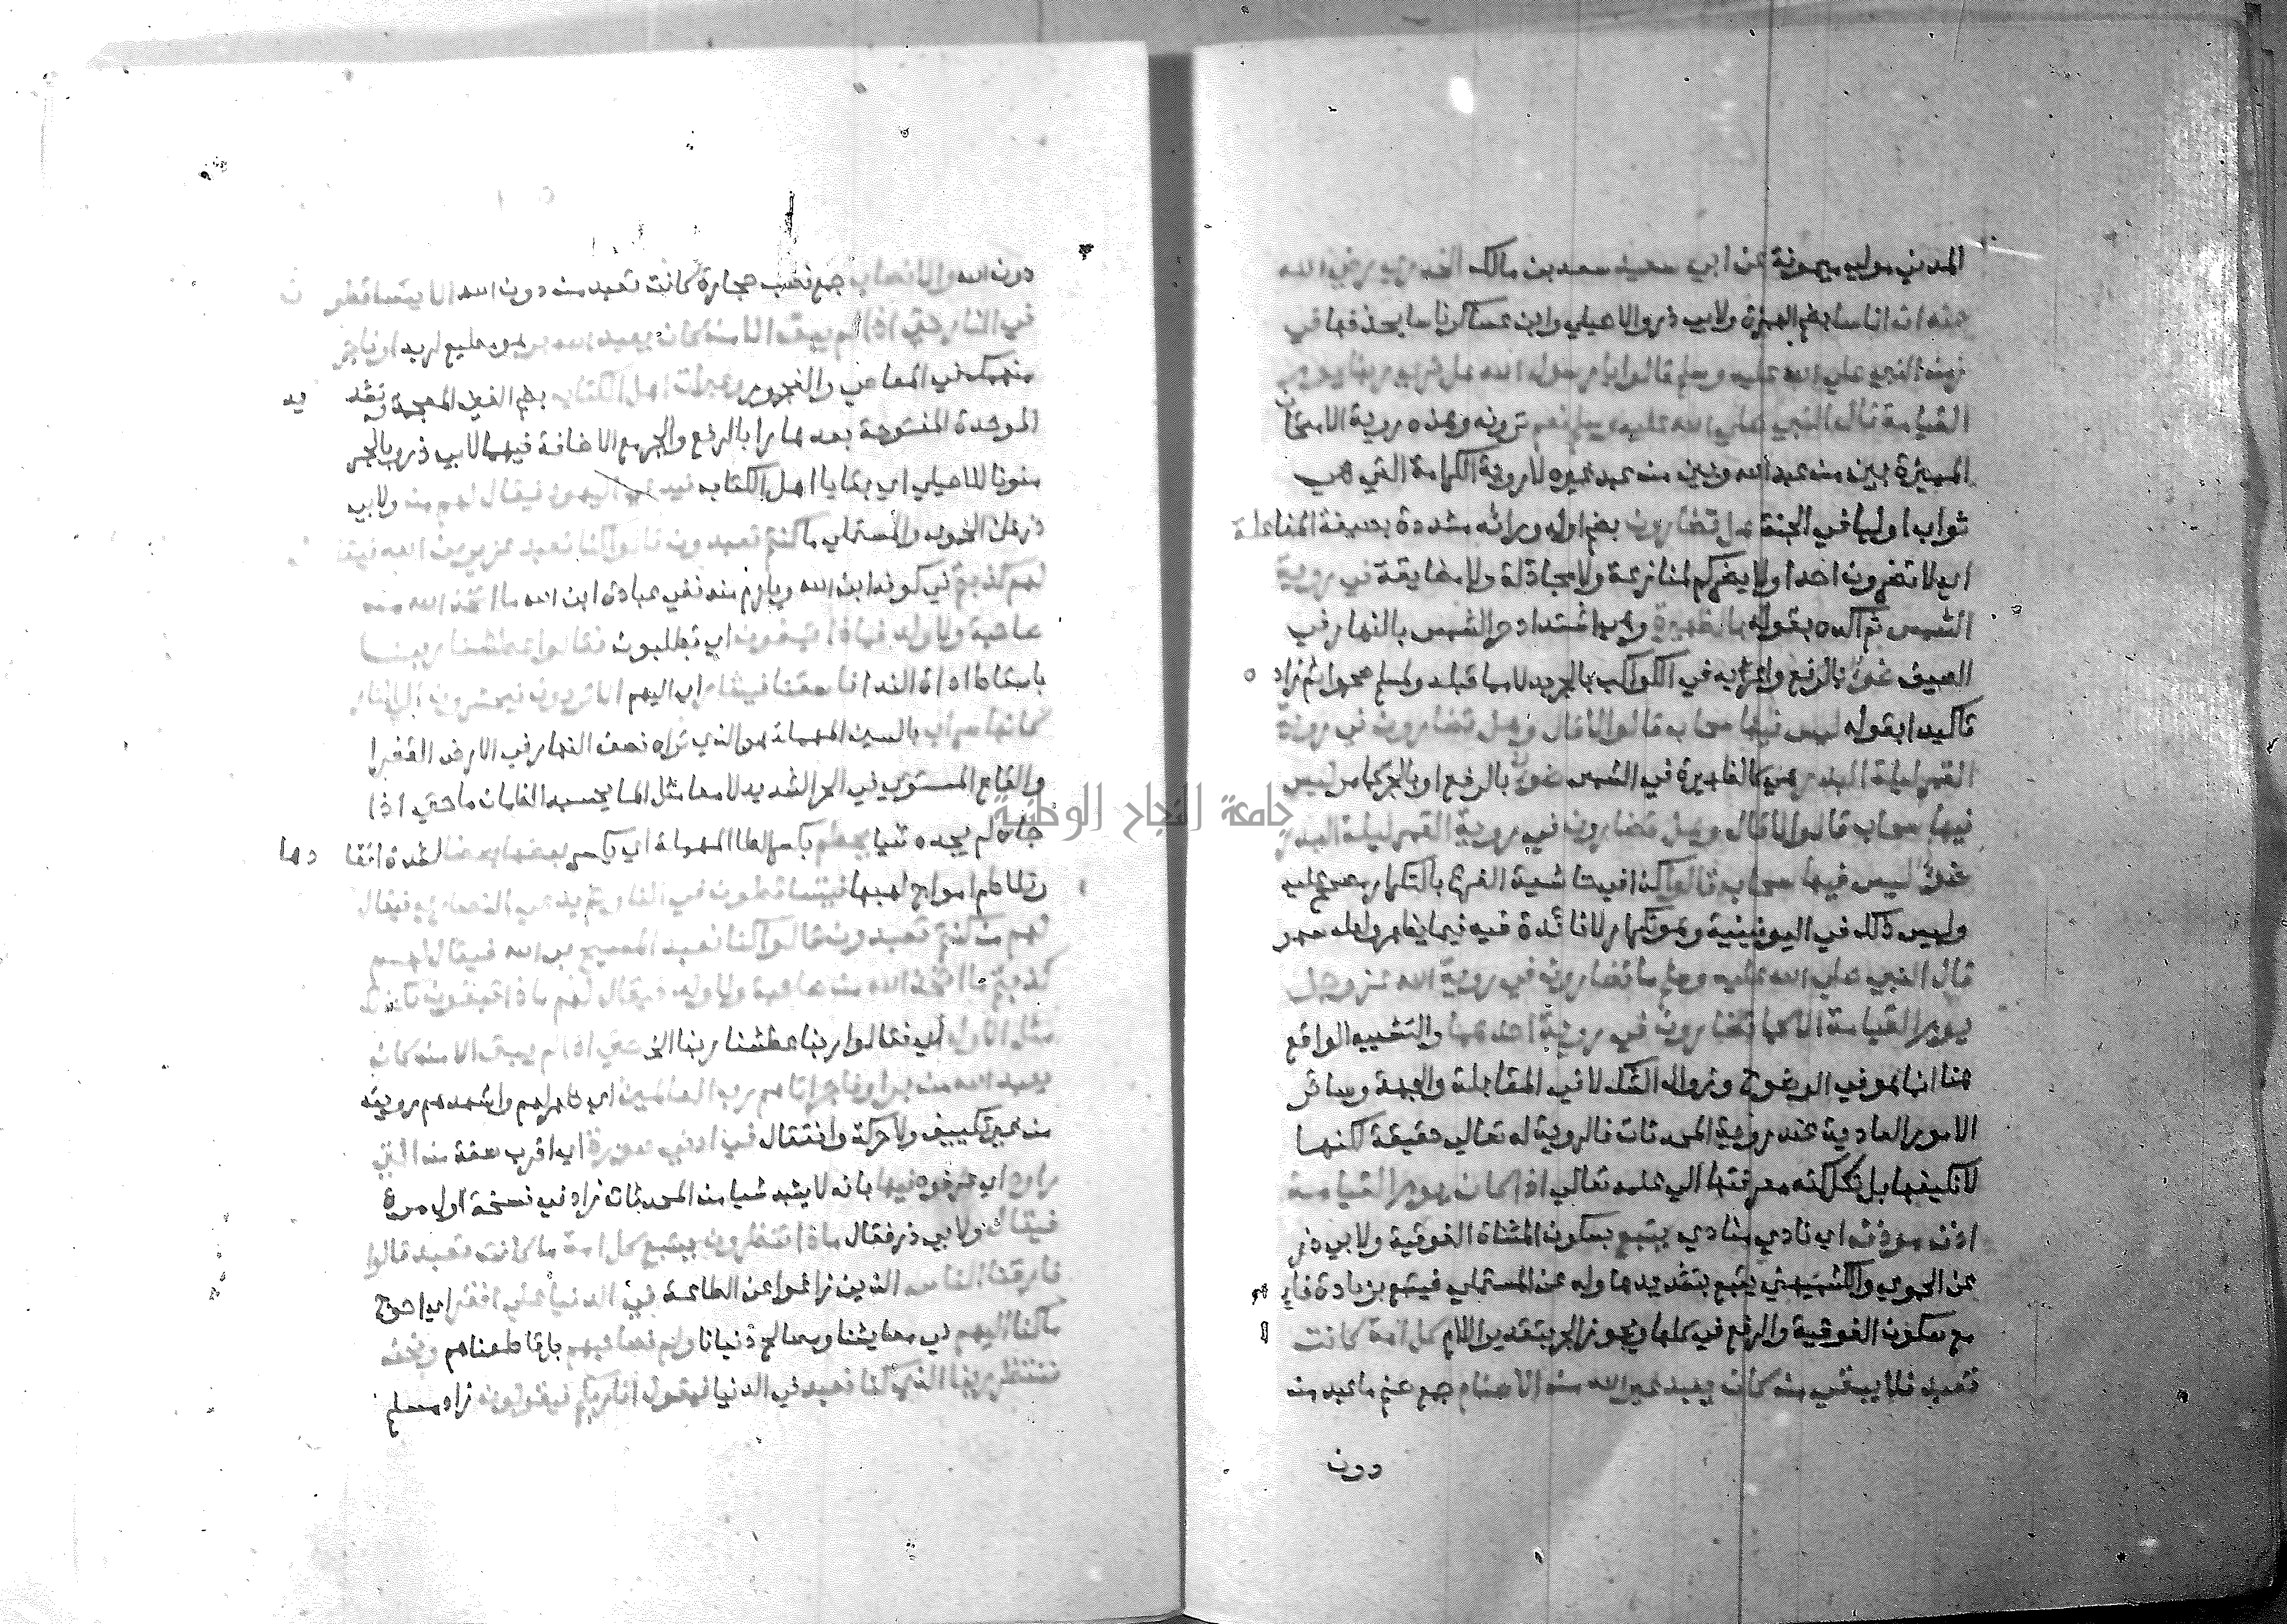 المدني مولى ميمونة عن ابي سعيد سعد بن مالك الخدري رضي الله
عنه ان اناسا بضم الهمزة ولابي ذر والاصيلي وابن عساكر ناسا بحذفها في
زمن النبي صلي الله عليه وسلم قالوا يا رسول الله هل نري ربنا يوم
القيامة قال النبي صلي الله عليه وسلم نعم ترونه وهذه روية الامتحان
المميزة بين من عبد الله وبين من عبد غيره لا روية الكرامة التي هي
ثواب اوليا في الجنة هل تضارون بضم اوله ورائه مشددة بصيغة المفاعلة
اي لا تضرون احدا ولا يضركم لمنازعة ولا مجادلة ولا مضايقة في روية
الشمس ثم اكده بقوله بالظهيرة وهي اشتداد حر الشمس بالنهار في
الصيف ضوء بالرفع واعرابه في الكواكب بالجر بدلا مما قبله ولمسلم صحوا ثم زاد
تاكيدا بقوله ليس فيها سحاب قالوا لا قال وهل تضارون في روية
القمر ليلة البدر هي كالظهيرة في الشمس ضوء بالرفع او بالجر كما مر ليس
فيها سحاب قالوا لا قال وهل تضارون في روية القمر ليلة البدر
ضوء ليس فيها سحاب قالوا كذا في حاشية الفرع بالتكرار مصحح عليه
وليس ذلك في اليونينية وهو تكرار لا فائدة فيه فيما يظهر ولعله سهو
قال النبي صلي الله عليه وسلم ما تضارون في روية الله عز وجل
يوم القيامة الا كما تضارون في روية احدهما والتشبيه الواقع
هنا انما هو في الوضوح وزوال الشك لا في المقابلة والجهة وسائر
الامور العادية عند روية المحدثات فالروية له تعالي حقيقة لكنها
لا نكيفها بل نكل كنه معرفتها الي علمه تعالي اذا كان يوم القيامة
اذن موذن اي نادي منادي يتبع بسكون المثناة الفوقية ولابي ذر
عن الحموي والكشميهني يتبع بتشديدها وله عن المستملي فيتبع بزيادة فاي
مع سكون الفوقية والرفع في كلها ويجوز الجر بتقدير اللام كل امة كانت
تعبد فلا يبقي من كان يعبد غير الله من الاصنام جمع صنم ما عبد من
دون
دون الله والانصاب جمع نصب حجارة كانت تعبد من دون الله الا يتساقطون
في النار حتي اذا لم يبق الا من كان يعبد الله بر هو مطيع لربه او فاجر
منهمك في المعاصي والفجور وغبرات اهل الكتاب بضم الغين المعجمة وتشديد
الموحدة المفتوحة بعدها را بالرفع والجر مع الاضافة فيهما لابي ذر بالجر
منونا للاصيلي اي بقايا اهل الكتاب فيدعي اليهود فيقال لهم من ولابي
ذر عن الحموي والمستملي ما كنتم تعبدون قالوا كنا نعبد عزير بن الله فيقال
لهم كذبتم في كونه ابن الله ويلزم منه نفي عبادة ابن الله ما اتخذ الله من
صاحبة ولا ولد فماذا تبغون اي تطلبون فقالوا عطشنا ربنا
باسقاط اداة الندا فاسقنا فيشار اي اليهم الا تردون فيحشرون الي النار
كانها سراب بالسين المهملة هو الذي تراه نصف النهار في الارض القفرا
والقاع المستوي في الحر الشديد لامعا مثل الما يحسبه الظمان ما حتي اذا
جاه لم يجده شيا يحطم بكسر الطا المهملة اي يكسر بعضها بعضا لشدة اتقادها
وتلاطم امواج لهبها فيتساقطون في النار ثم يدعي النصاري فيقال
لهم من كنتم تعبدون قالوا كنا نعبد المسيح بن الله فيقال لهم
كذبتم ما اتخذ الله من صاحبة ولا ولد فيقال لهم ماذا تبغون فكذلك
مثل الاول اي فقالوا ربنا عطشنا ربنا الخ حتي اذا لم يبق الا من كان
يعبد الله من بر او فاجر اتاهم رب العالمين اي ظهر لهم واشهدهم رويته
من غير تكييف ولا حركة وانتقال في ادني صورة اي اقرب صفة من التي
راوه اي عرفوه فيها بانه لا يشبه شيا من المحدثات زاد في نسخة اول مرة
فيقال ولابي ذر فقال ماذا تنتظرون يتبع كل امة ما كانت تعبد قالوا
فارقنا الناس الذين زاغوا عن الطاعة في الدنيا علي افقر اي احوج
ما كنا اليهم في معايشنا ومصالح دنيانا ولم نصاحبهم بل قاطعناهم ونحن
ننتظر ربنا الذي كنا نعبد في الدنيا فيقول انا ربكم فيقولون زاد مسلم
جامعة النجاح الوطنية